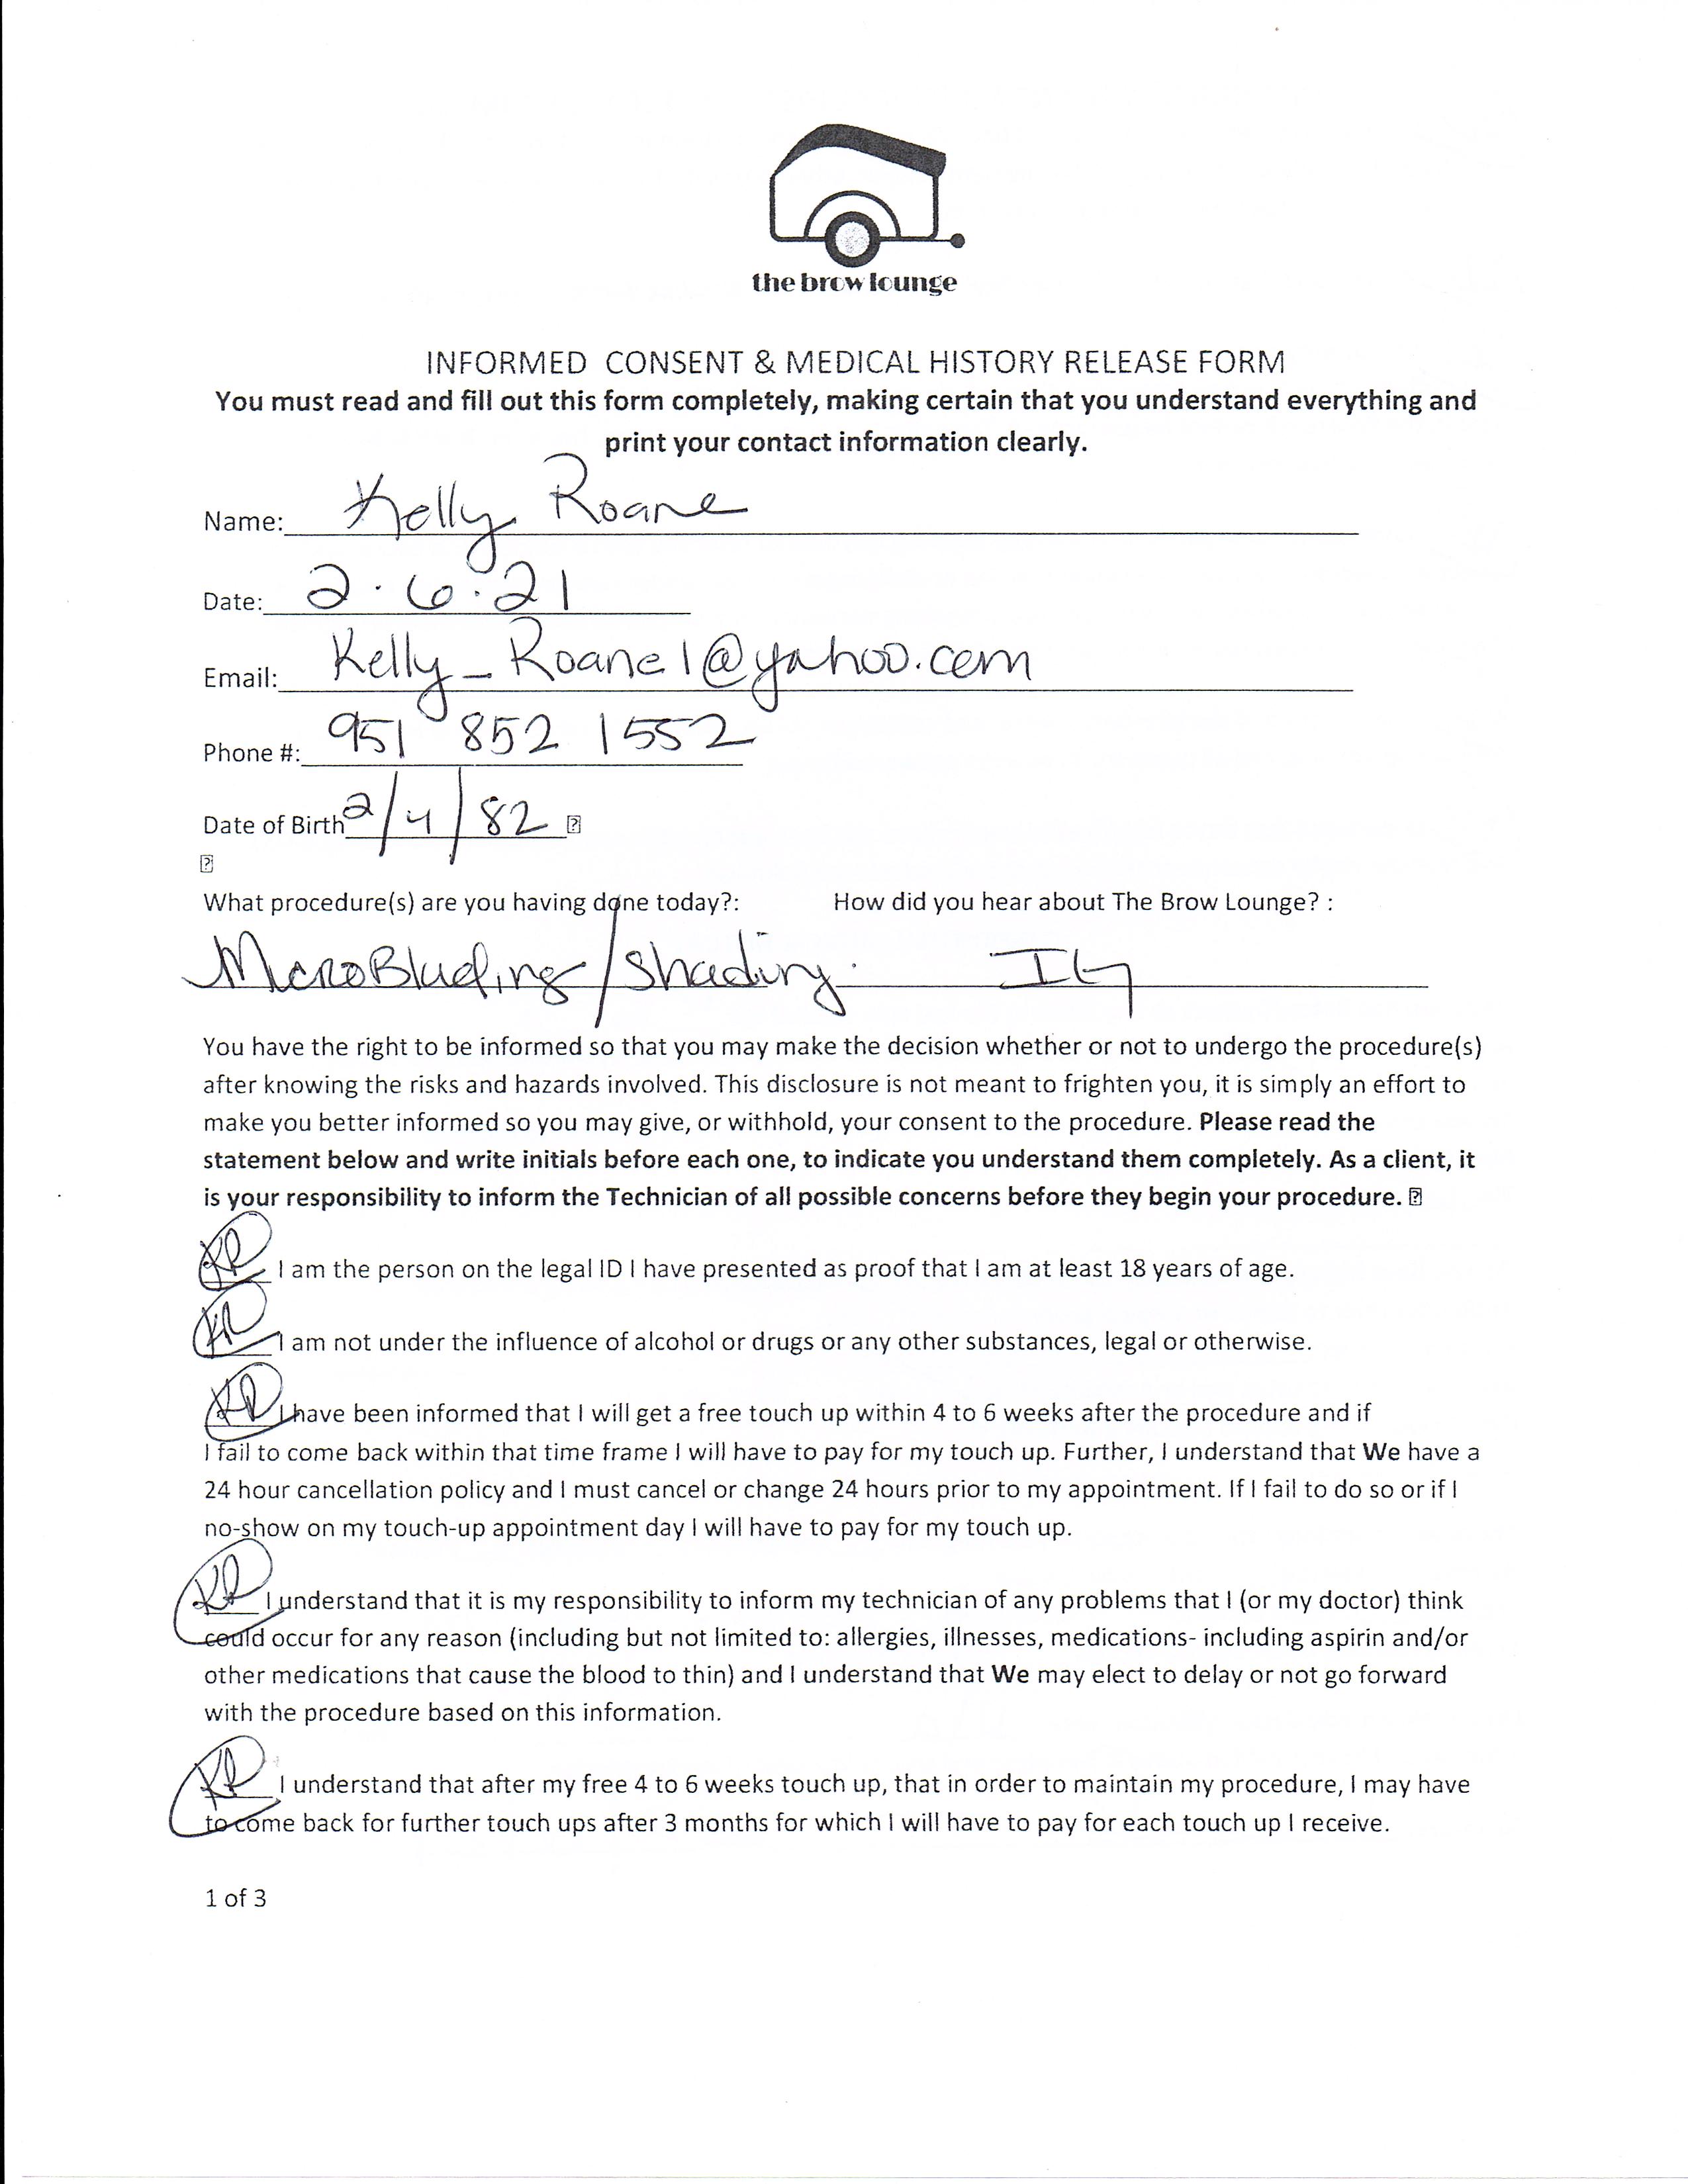 the brow lounge
INFORMED CONSENT & MEDICAL HISTORY RELEASE FORM
You must read and fill out this form completely, making certain that you understand everything and
print your contact information clearly.
Name: Kelly Roane
Date: 2.6.21
Email: Kelly_Roane1@yahoo.com
Phone #: 951 852 1552
Date of Birth 2/4/82
What procedure(s) are you having done today?: How did you hear about The Brow Lounge? :
MicroBlading/Shading. IG
You have the right to be informed so that you may make the decision whether or not to undergo the procedure(s)
after knowing the risks and hazards involved. This disclosure is not meant to frighten you, it is simply an effort to
make you better informed so you may give, or withhold, your consent to the procedure. Please read the
statement below and write initials before each one, to indicate you understand them completely. As a client, it
is your responsibility to inform the Technician of all possible concerns before they begin your procedure.
KR I am the person on the legal ID I have presented as proof that I am at least 18 years of age.
KR I am not under the influence of alcohol or drugs or any other substances, legal or otherwise.
KR I have been informed that I will get a free touch up within 4 to 6 weeks after the procedure and if
I fail to come back within that time frame I will have to pay for my touch up. Further, I understand that We have a
24 hour cancellation policy and I must cancel or change 24 hours prior to my appointment. If I fail to do so or if I
no-show on my touch-up appointment day I will have to pay for my touch up.
KR I understand that it is my responsibility to inform my technician of any problems that I (or my doctor) think
could occur for any reason (including but not limited to: allergies, illnesses, medications- including aspirin and/or
other medications that cause the blood to thin) and I understand that We may elect to delay or not go forward
with the procedure based on this information.
KR I understand that after my free 4 to 6 weeks touch up, that in order to maintain my procedure, I may have
to come back for further touch ups after 3 months for which I will have to pay for each touch up I receive.
1 of 3